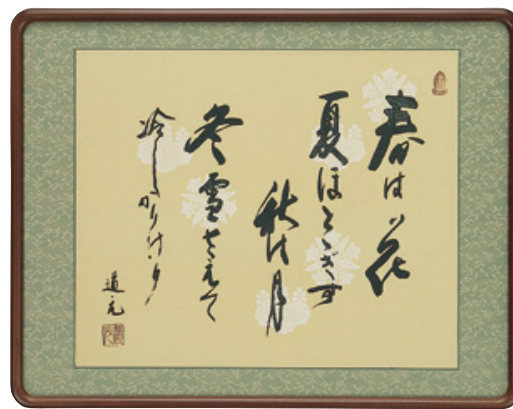 春は花
夏ほとゝぎす
秋は月
冬雪さえて
冷しかりけり
道元